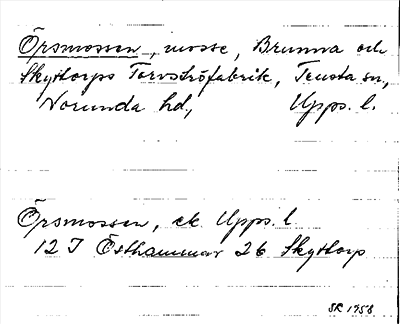 Örsmossen, mosse, Brunna och
Skyttorps Torvströfabrik, Tensta sn,
Norunda hd, Upps. l.
Örsmossen, ek Upps. l.
12 I Östhammar 26 Skyttorp
SR 1958